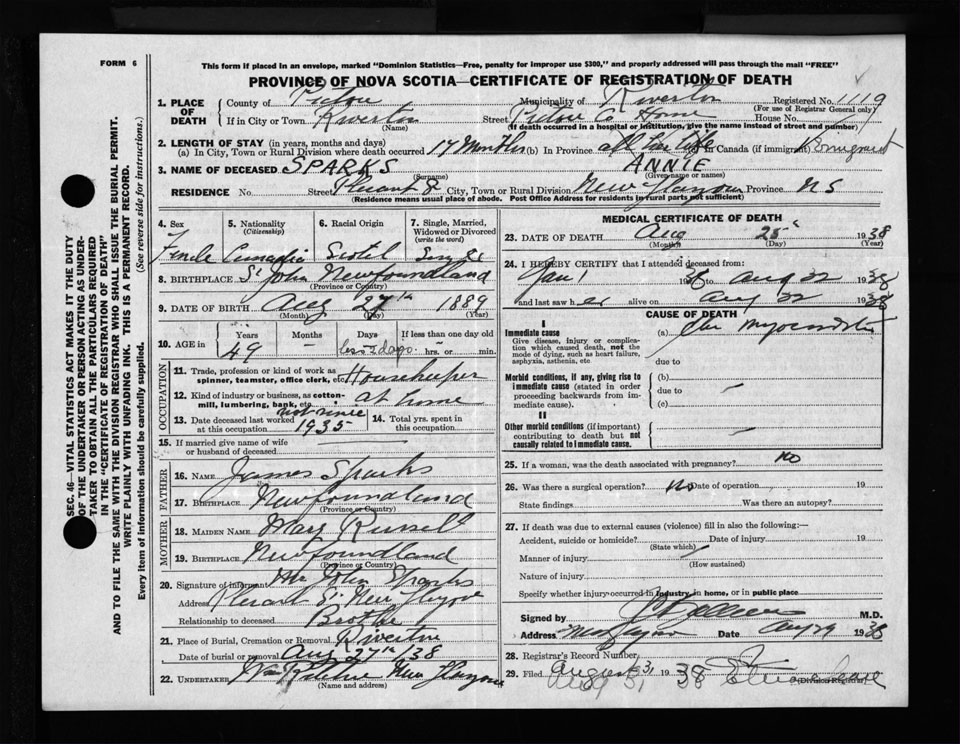 FORM 6
This form if placed in an envelope, marked "Dominion Statistics—Free, penalty for improper use $300," and properly addressed will pass through the mail "FREE"
PROVINCE OF NOVA SCOTIA—CERTIFICATE OF REGISTRATION OF DEATH
1. PLACE OF DEATH
County of Pictou Municipality of Riverton Registered No. 1119
(For use of Registrar General only)
If in City or Town Riverton Street Pictou Co Home House No.
(Name) (If death occurred in a hospital or institution, give the name instead of street and number)
2. LENGTH OF STAY (in years, months and days)
(a) In City, Town or Rural Division where death occurred 17 Months (b) In Province all her life (c) In Canada (if immigrant)
3. NAME OF DECEASED SPARKS ANNIE
(Surname) (Given name or names)
RESIDENCE No. Street City, Town or Rural Division New Glasgow Province NS
(Residence means usual place of abode. Post Office Address for residents in rural parts not sufficient)
SEC. 46—VITAL STATISTICS ACT MAKES IT THE DUTY
OF THE UNDERTAKER OR PERSON ACTING AS UNDER-
TAKER TO OBTAIN ALL THE PARTICULARS REQUIRED
IN THE "CERTIFICATE OF REGISTRATION OF DEATH"
AND TO FILE THE SAME WITH THE DIVISION REGISTRAR WHO SHALL ISSUE THE BURIAL PERMIT.
WRITE PLAINLY WITH UNFADING INK. THIS IS A PERMANENT RECORD.
Every item of information should be carefully supplied. (See reverse side for instructions.)
4. Sex 5. Nationality (Citizenship) 6. Racial Origin 7. Single, Married, Widowed or Divorced (write the word)
Female Canadian Scotch Single
8. BIRTHPLACE St John Newfoundland
(Province or Country)
9. DATE OF BIRTH Aug 27th 1889
(Month) (Day) (Year)
10. AGE in Years Months Days If less than one day old
49 — less 2 days hrs. or min.
OCCUPATION
11. Trade, profession or kind of work as spinner, teamster, office clerk, etc. Housekeeper
12. Kind of industry or business, as cotton-mill, lumbering, bank, etc. at home
13. Date deceased last worked at this occupation not since 1935
14. Total yrs. spent in this occupation
15. If married give name of wife or husband of deceased
FATHER
16. NAME James Sparks
17. BIRTHPLACE Newfoundland
(Province or Country)
MOTHER
18. MAIDEN NAME Mary Russell
19. BIRTHPLACE Newfoundland
(Province or Country)
20. Signature of informant Mr John Sparks
Address St New Glasgow
Relationship to deceased Brother
21. Place of Burial, Cremation or Removal Riverton
Date of burial or removal Aug 27th/38
22. UNDERTAKER New Glasgow
(Name and address)
MEDICAL CERTIFICATE OF DEATH
23. DATE OF DEATH Aug 25 1938
(Month) (Day) (Year)
24. I HEREBY CERTIFY that I attended deceased from:
Jan 1 1938 to Aug 22 1938
and last saw her alive on Aug 22 1938
CAUSE OF DEATH
I
Immediate cause (a)
Give disease, injury or complication which caused death, not the mode of dying, such as heart failure, asphyxia, asthenia, etc. due to
Morbid conditions, if any, giving rise to immediate cause (stated in order proceeding backwards from immediate cause). (b) due to (c)
II
Other morbid conditions (if important) contributing to death but not causally related to immediate cause.
25. If a woman, was the death associated with pregnancy? no
26. Was there a surgical operation? no Date of operation 19
State findings Was there an autopsy?
27. If death was due to external causes (violence) fill in also the following:—
Accident, suicide or homicide? Date of injury 19
(State which)
Manner of injury
(How sustained)
Nature of injury
Specify whether injury occurred in industry, in home, or in public place
Signed by M.D.
Address New Glasgow Date Aug 29 1938
28. Registrar's Record Number
29. Filed August 31 1938
Aug 31 38
(Division Registrar)